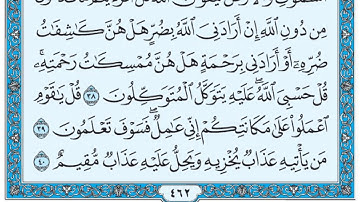 مِن دُونِ ٱللَّهِ إِنْ أَرَادَنِىَ ٱللَّهُ بِضُرٍّ هَلْ هُنَّ كَـٰشِفَـٰتُ
ضُرِّهِۦٓ أَوْ أَرَادَنِى بِرَحْمَةٍ هَلْ هُنَّ مُمْسِكَـٰتُ رَحْمَتِهِۦ ۚ
قُلْ حَسْبِىَ ٱللَّهُ ۖ عَلَيْهِ يَتَوَكَّلُ ٱلْمُتَوَكِّلُونَ ٣٨ قُلْ يَـٰقَوْمِ
ٱعْمَلُوا۟ عَلَىٰ مَكَانَتِكُمْ إِنِّى عَـٰمِلٌ ۖ فَسَوْفَ تَعْلَمُونَ
٣٩ مَن يَأْتِيهِ عَذَابٌ يُخْزِيهِ وَيَحِلُّ عَلَيْهِ عَذَابٌ مُّقِيمٌ ٤٠
٤٦٢